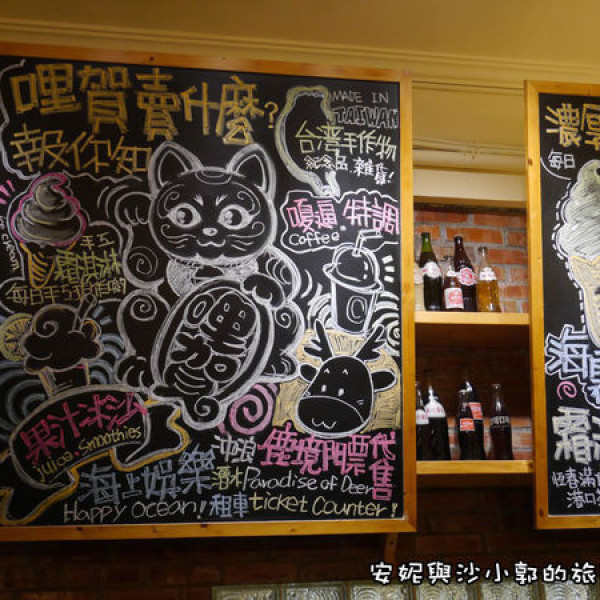 哩賀賣什麼?
報你知
MADE IN
TAIWAN
台灣手作物
紀念品.雜貨!
嘎逼.特調
Coffee.
ice cream
手工
霜淇淋
哩加
果汁.冰沙
juice.smoothies
海上娛樂
Happy ocean!
沖浪
潛水
租車
鹿境門票代售
Paradise of Deer
ticket counter!
濃厚
每日
海
霜淇
恆春滿
港口
安妮與沙小郭的旅